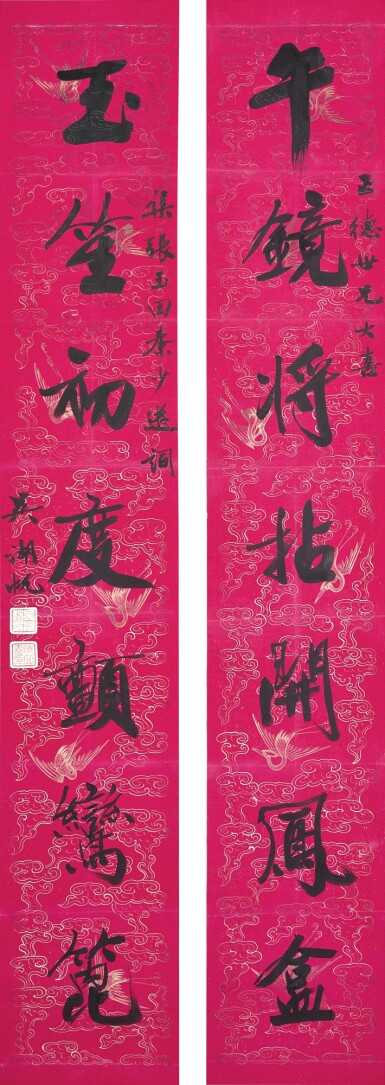 午鏡將拈開鳳盒
德世兄大喜
玉笙初度顫鸞篦
集張玉田秦少游詞
吳湖帆